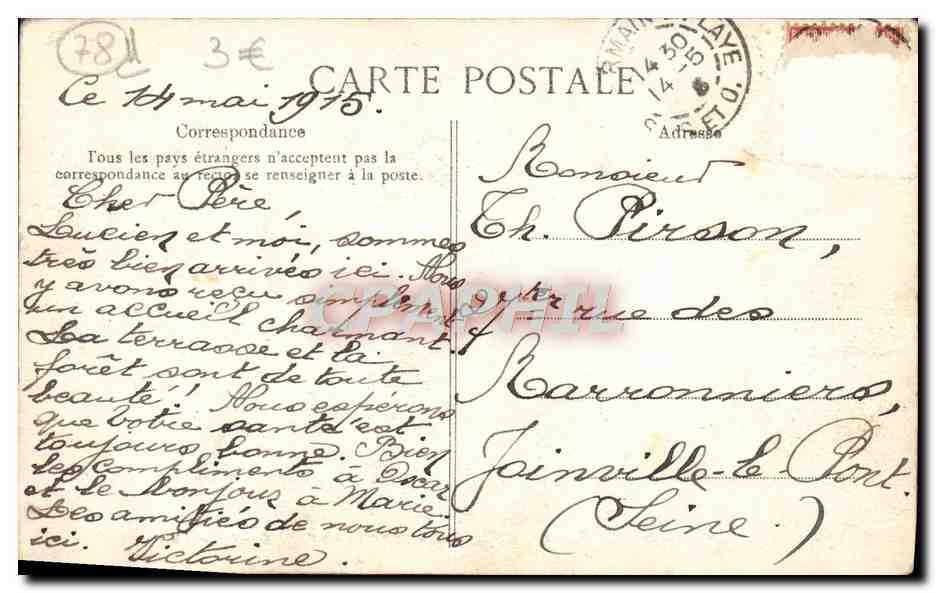 78
3€
CARTE POSTALE
RMAIN LAYE
14 30
14 -5
ET O.
Ce 14 mai 1915.
Correspondance
Tous les pays étrangers n'acceptent pas la
correspondance au recto, se renseigner à la poste.
Cher Père,
Lucien et moi, sommes
très bien arrivés ici. Nous
y avons reçu simplement
un accueil charmant.
La terrasse et la
forêt sont de toute
beauté! Nous espérons
que votre santé est
toujours bonne. Bien
les compliments à Oscar
et le bonjour à Marie.
Les amitiés de nous tous
ici. Victorine
Adresse
Monsieur
Th. Pirson,
ter rue des
Marronniers,
Joinville-le-Pont.
(Seine.)
CPAPHIL